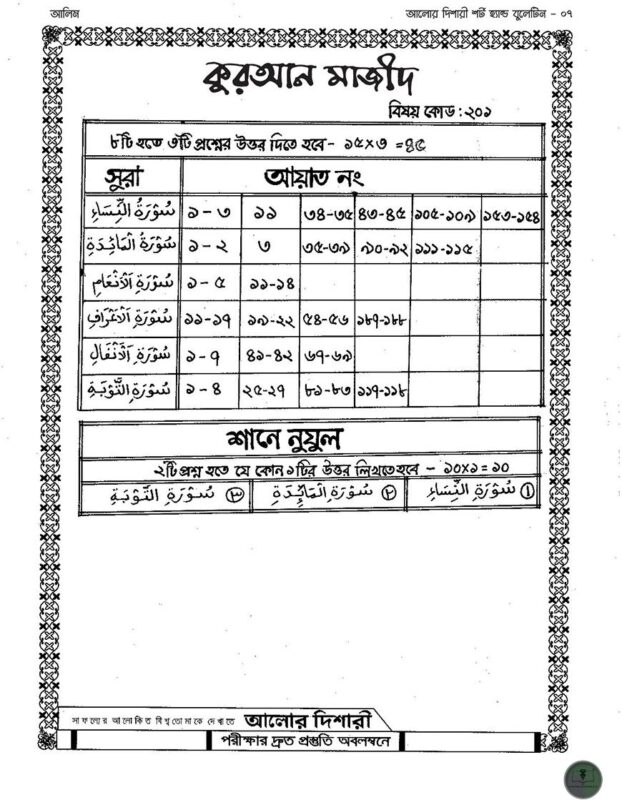 আলিম আলোর দিশারী শর্ট হ্যান্ড বুলেটিন - ০৭
কুরআন মাজীদ
বিষয় কোড : ২০১
৮টি হতে ৩টি প্রশ্নের উত্তর দিতে হবে - ১৫×৩ = ৪৫
সুরা আয়াত নং
سُوْرَةُ النِّسَاءِ ১ - ৩ ১১ ৩৪-৩৫ ৪৩-৪৫ ১০৫-১০৯ ১৫৩-১৫৪
سُوْرَةُ الْمَائِدَةِ ১ - ২ ৩ ৩৫-৩৯ ৯০-৯২ ১১১-১১৫
سُوْرَةِ الْاَنْعَامِ ১ - ৫ ১১-১৪
سُوْرَةِ الْاَعْرَافِ ১১-১৭ ১৯-২২ ৫৪-৫৬ ১৮৭-১৮৮
سُوْرَةِ الْاَنْفَالِ ১ - ৭ ৪১-৪২ ৬৭-৬৯
سُوْرَةِ التَّوْبَةِ ১ - ৪ ২৫-২৭ ৮১-৮৩ ১১৭-১১৮
শানে নুযুল
২টি প্রশ্ন হতে যে কোন ১টির উত্তর লিখতে হবে - ১০×১ = ১০
① سُوْرَةِ النِّسَاءِ ② سُوْرَةِ الْمَائِدَةِ ③ سُوْرَةِ التَّوْبَةِ
সাফল্যের আলোকিত বিশ্ব তোমাকে দেখাতে আলোর দিশারী
পরীক্ষার দ্রুত প্রস্তুতি অবলম্বনে